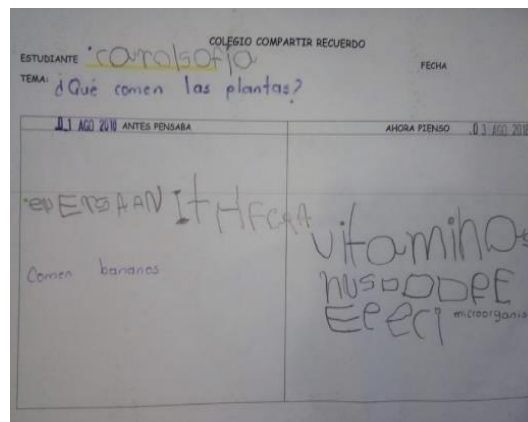 COLEGIO COMPARTIR RECUERDO
ESTUDIANTE carolsofia
FECHA
TEMA: ¿Qué comen las plantas?
01 AGO 2018 ANTES PENSABA
AHORA PIENSO 03 AGO 2018
Comen bananos
vitaminas
microorganis